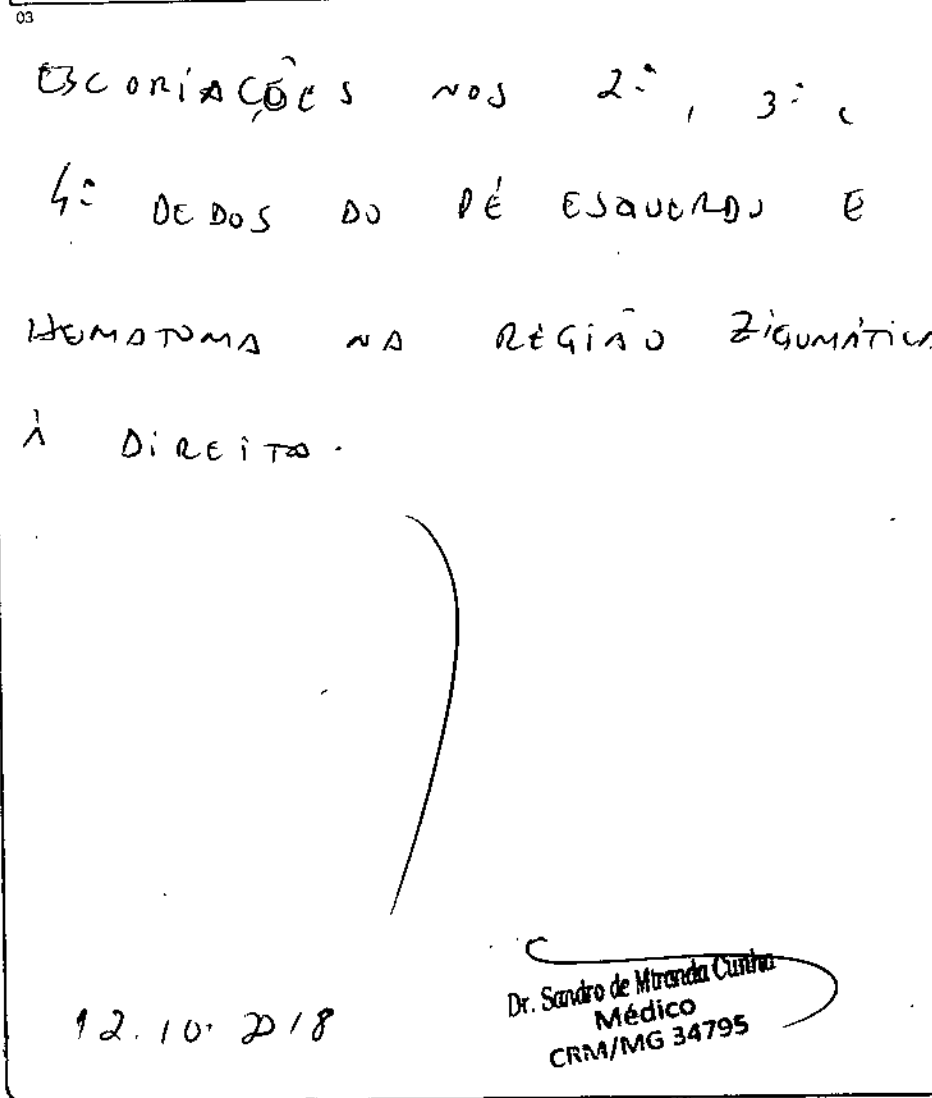 03
ESCORIAÇÕES NOS 2º, 3º E
4º DEDOS DO PÉ ESQUERDO E
HEMATOMA NA REGIÃO ZIGUMÁTICA
À DIREITA.
12.10.2018
Dr. Sandro de Miranda Cunha
Médico
CRM/MG 34795